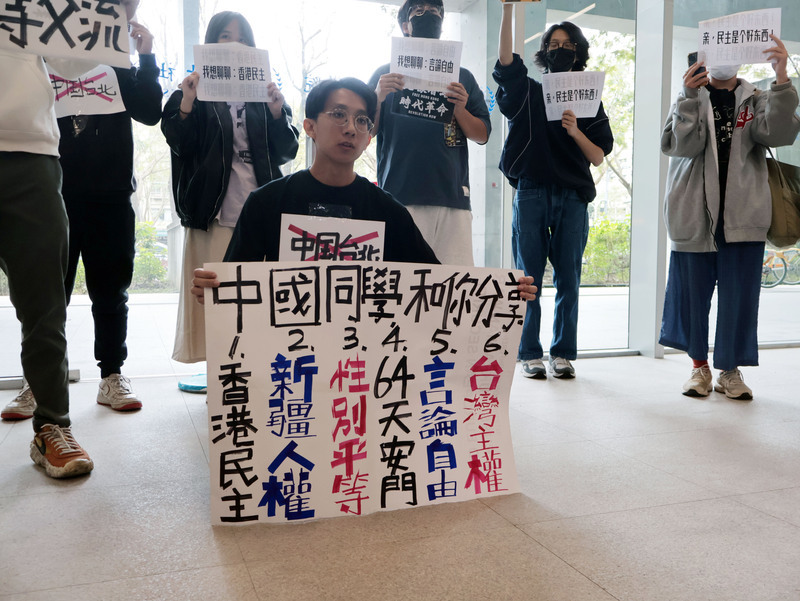 等交流
中国台北
我想聊聊：香港民主
我想聊聊：言論自由
時代革命
REVOLUTION NOW
亲，民主是个好东西！
亲，民主是个好东西！
中国台北
中國同學和你分享
1. 香港民主
2. 新疆人權
3. 性別平等
4. 64天安門
5. 言論自由
6. 台灣主權